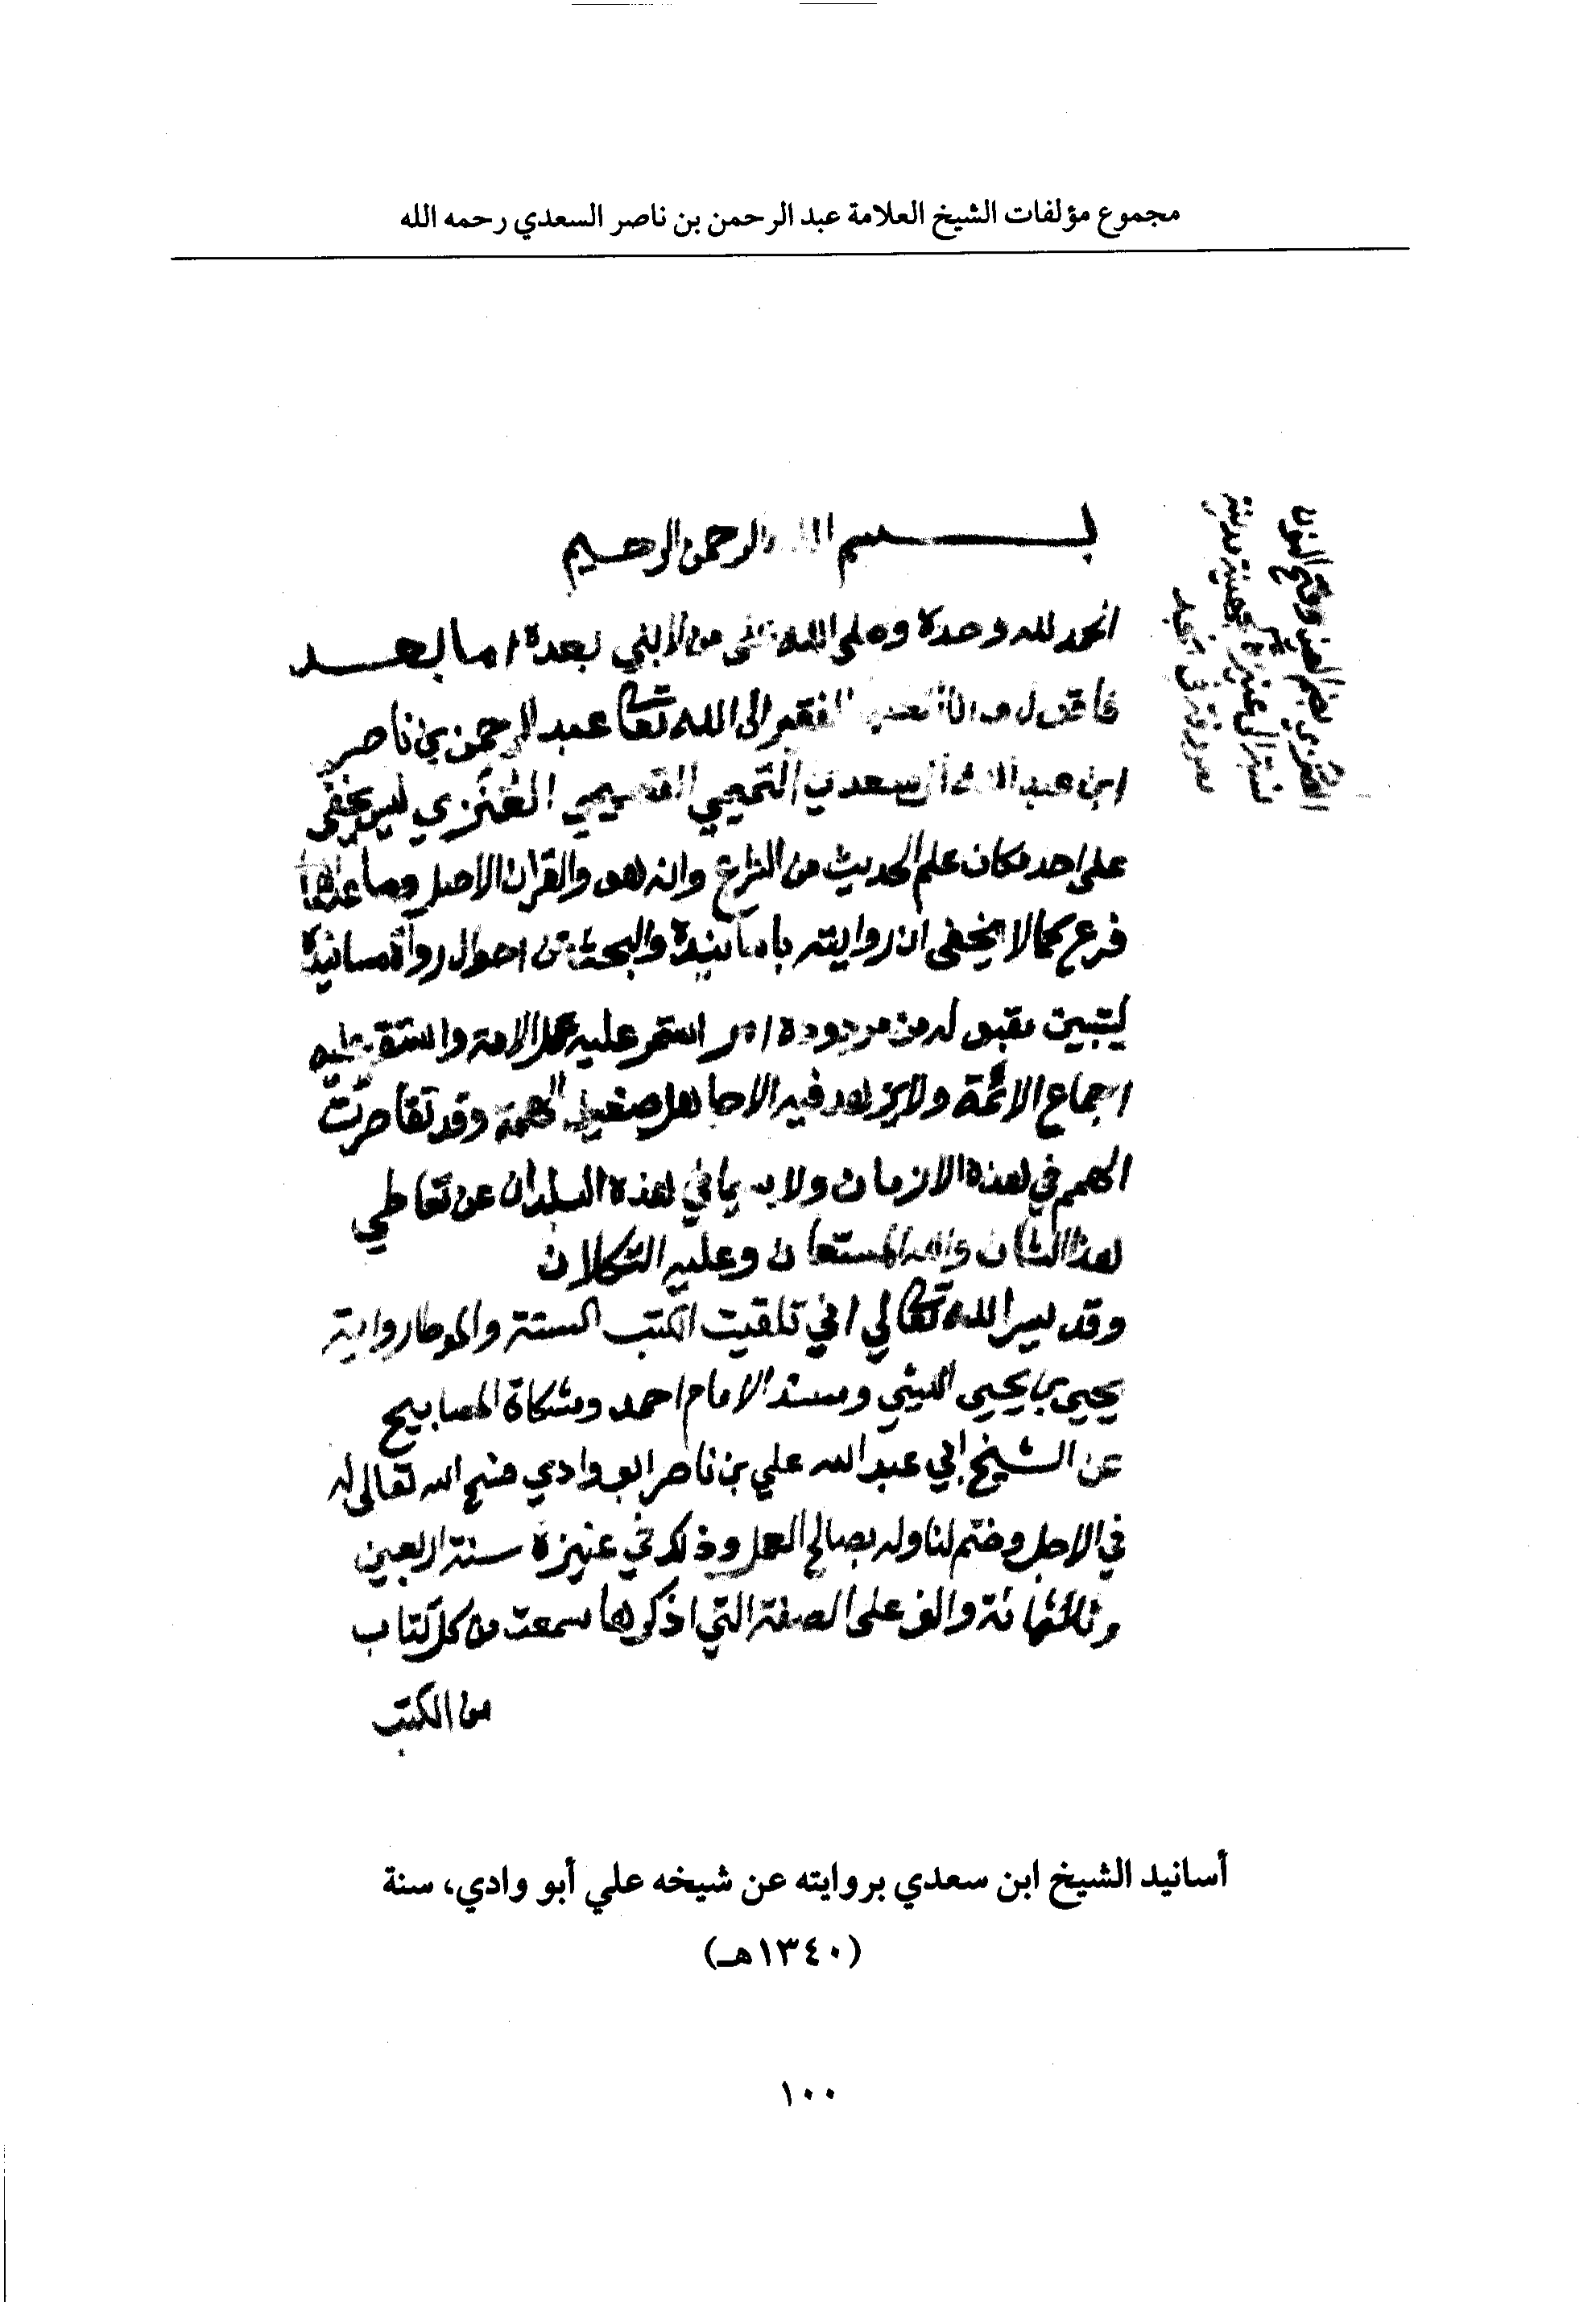 مجموع مؤلفات الشيخ العلامة عبد الرحمن بن ناصر السعدي رحمه الله
بسم الله الرحمن الرحيم
الحمد لله وحده وصلى الله على من لا نبي بعده اما بعد
فاقول وانا العبد الفقير الى الله تعالى عبد الرحمن بن ناصر
ابن عبد الله آل سعدي التميمي القصيمي العُنَزي ليس يخفى
على احد مكان علم الحديث من الشرع وانه هو والقرآن الاصل وما عداهما
فرع كما لا يخفى ان روايته باسانيده والبحث عن احوال رواة مسانيده
ليتبين مقبوله من مردوده امر استمر عليه عمل الامة واستقر عليه
اجماع الائمة ولا يزهد فيه الا جاهل ضعيف الهمة وقد تقاصرت
الهمم في هذه الازمان ولا سيما في هذه البلدان عن تعاطي
هذا الشان والله المستعان وعليه التكلان
وقد يسر الله تعالى اني تلقيت الكتب الستة والموطا رواية
يحيى بن يحيى الليثي ومسند الامام احمد ومشكاة المصابيح
عن الشيخ ابي عبد الله علي بن ناصر ابو وادي فسح الله تعالى له
في الاجل وختم لنا وله بصالح العمل وذلك في عنيزة سنة اربعين
وثلثمائة والف على الصفة التي اذكرها سمعت من كل كتاب
من الكتب
العُنَزي بضم العين وفتح النون
نسبة الى عنيزة مدينة
من قرى نجد
أسانيد الشيخ ابن سعدي بروايته عن شيخه علي أبو وادي، سنة
(١٣٤٠هـ)
١٠٠